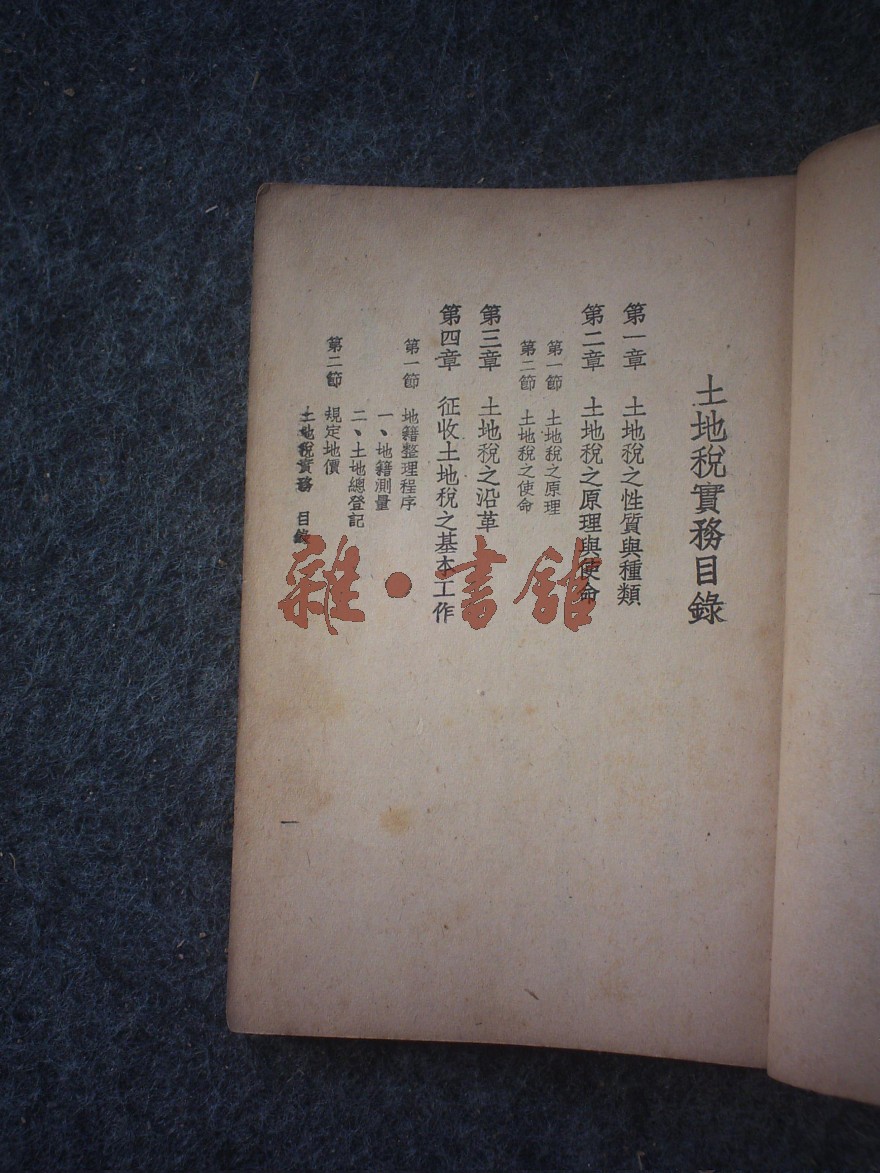 土地稅實務目錄
第一章 土地稅之性質與種類
第二章 土地稅之原理與使命
第一節 土地稅之原理
第二節 土地稅之使命
第三章 土地稅之沿革
第四章 征收土地稅之基本工作
第一節 地籍整理程序
一、地籍測量
二、土地總登記
第二節 規定地價
土地稅實務 目錄
一
雜·書館